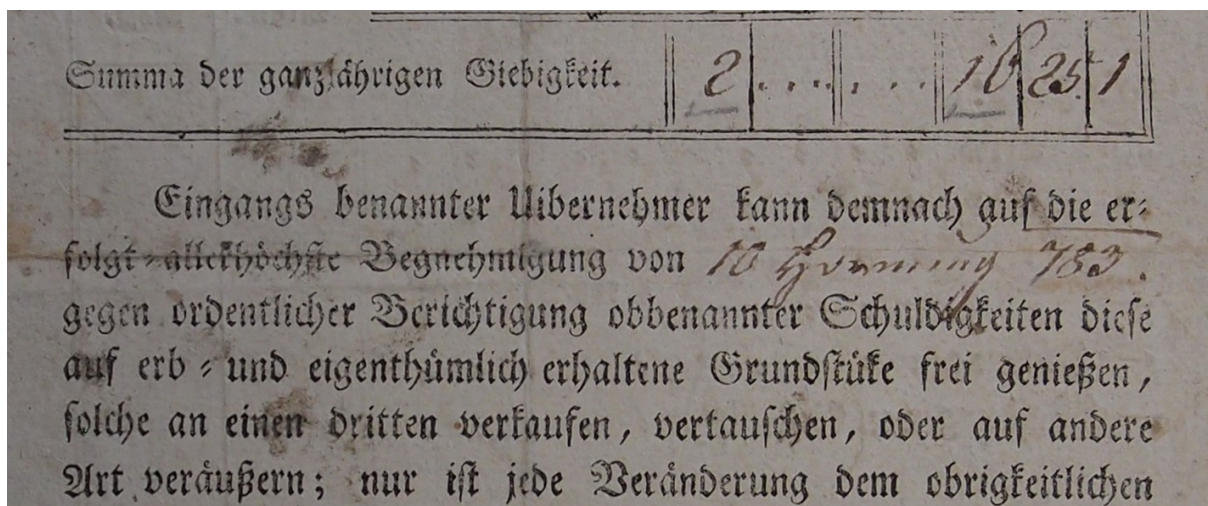 Summa der ganzjährigen Giebigkeit. 2 . . . . . . . 16 25 1
Eingangs benannter Uibernehmer kann demnach auf die er-
folgt-allerhöchste Begnehmigung von 10 Hornung 783.
gegen ordentlicher Berichtigung obbenannter Schuldigkeiten diese
auf erb- und eigenthümlich erhaltene Grundstüke frei genießen,
solche an einen dritten verkaufen, vertauschen, oder auf andere
Art veräußern; nur ist jede Veränderung dem obrigkeitlichen